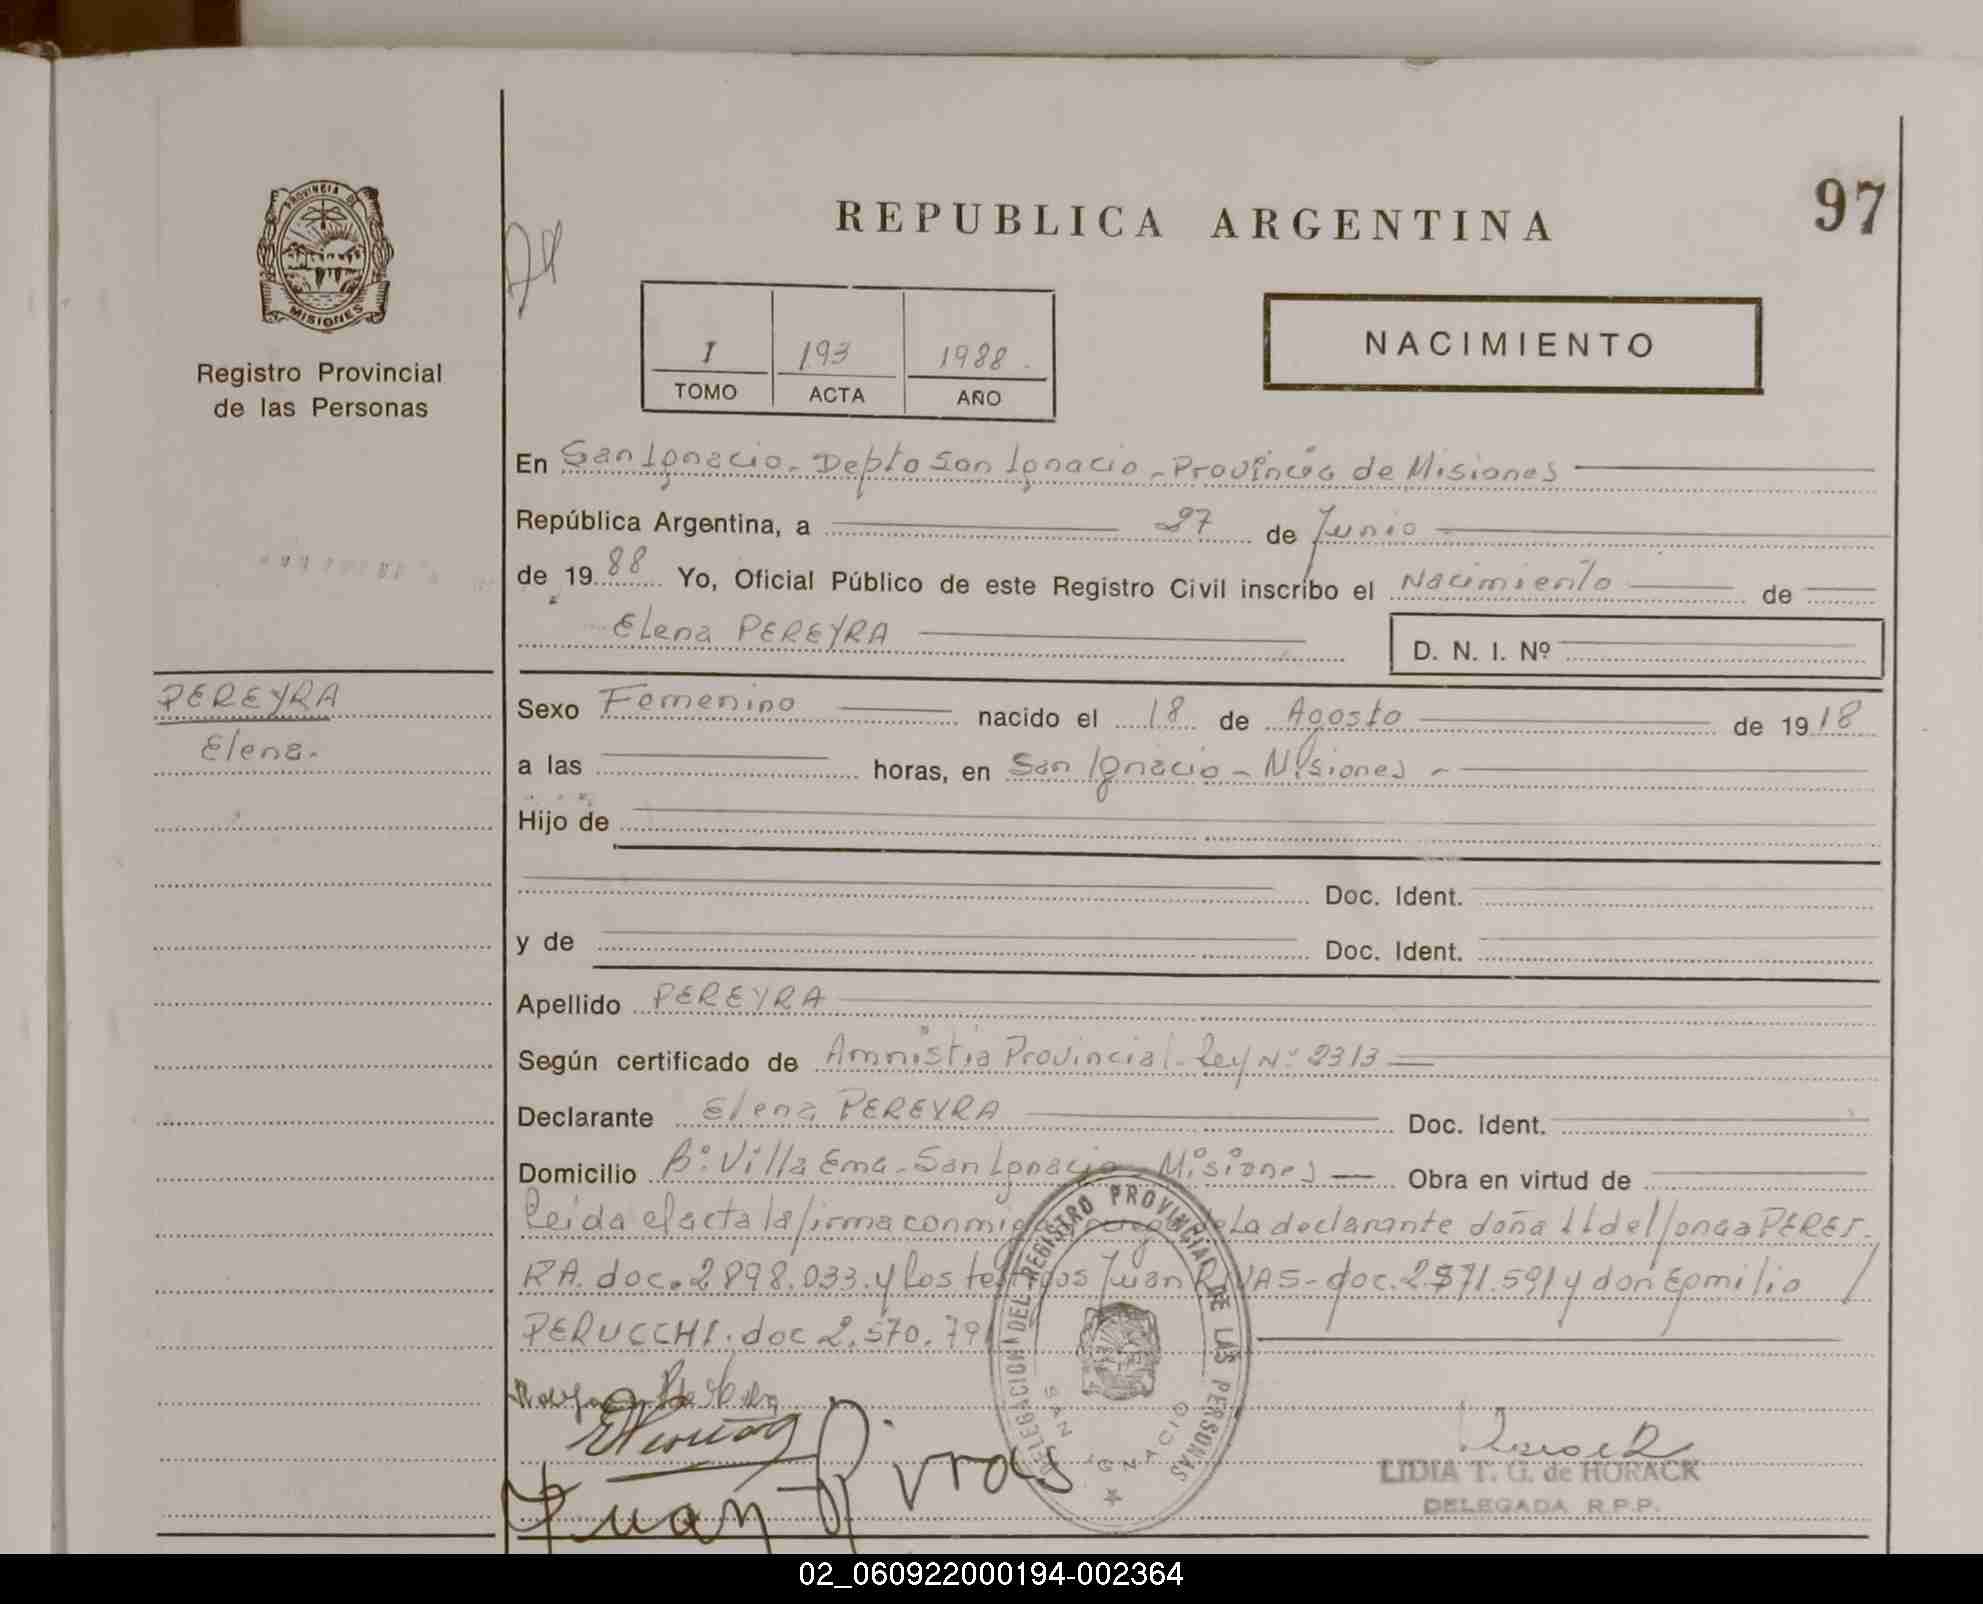 REPUBLICA ARGENTINA
97
PROVINCIA DE
MISIONES
Registro Provincial
de las Personas
I 193 1988
TOMO ACTA AÑO
NACIMIENTO
En San Ignacio - Depto San Ignacio - Provincia de Misiones
República Argentina, a 27 de Junio
de 1988 Yo, Oficial Público de este Registro Civil inscribo el Nacimiento de
Elena PEREYRA D. N. I. Nº
PEREYRA
Elena.
Sexo Femenino nacido el 18 de Agosto de 1918
a las horas, en San Ignacio - Misiones -
Hijo de
Doc. Ident.
y de Doc. Ident.
Apellido PEREYRA
Según certificado de Amnistia Provincial - Ley Nº 2313
Declarante Elena PEREYRA Doc. Ident.
Domicilio Bº Villa Ema - San Ignacio - Misiones Obra en virtud de
Leida el acta la firma conmigo la declarante doña Ildelfonsa PEREY-
RA. doc. 2.898.033. y los testigos Juan RIVAS - doc. 2.571.591 y don Epmilio
PERUCCHI. doc 2.570.79
DELEGACION DEL REGISTRO PROVINCIAL DE LAS PERSONAS
SAN IGNACIO
Juan Rivas
LIDIA T. G. de HORACK
DELEGADA R.P.P.
02_060922000194-002364